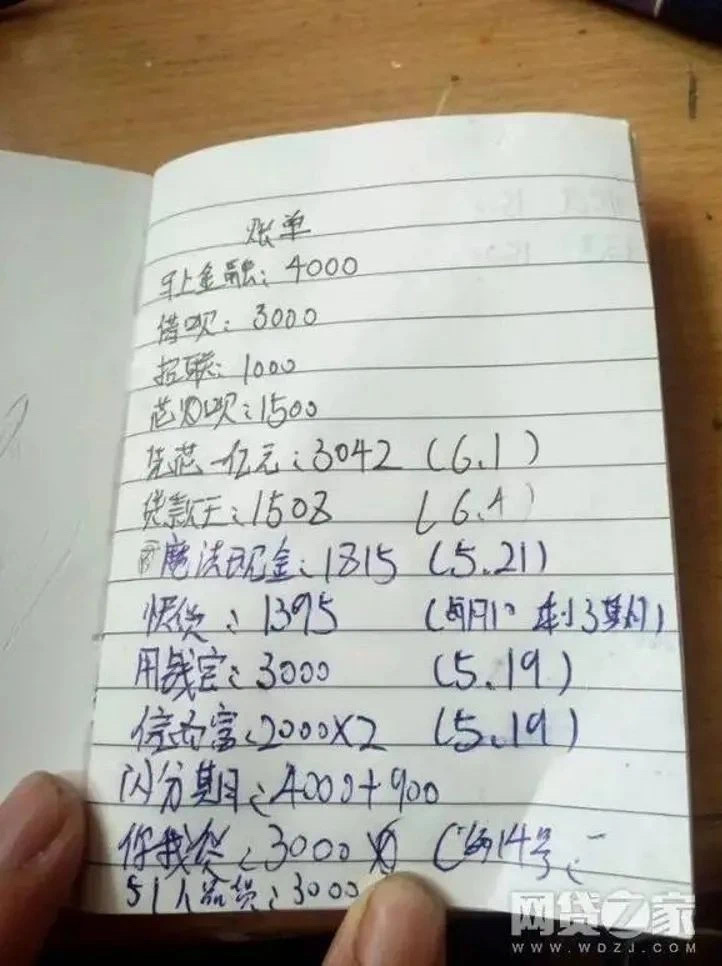 账单
马上金融：4000
借呗：3000
招联：1000
1500
一亿元：3042 (6.1)
贷款王：1508 (6.4)
魔法现金：1815 (5.21)
快贷：1395 (每月1° 剩3期)
用钱宝：3000 (5.19)
信而富：2000×2 (5.19)
闪分期：4000+900
你我贷：3000 (每14号
51人品贷：3000
网贷之家
WWW.WDZJ.COM